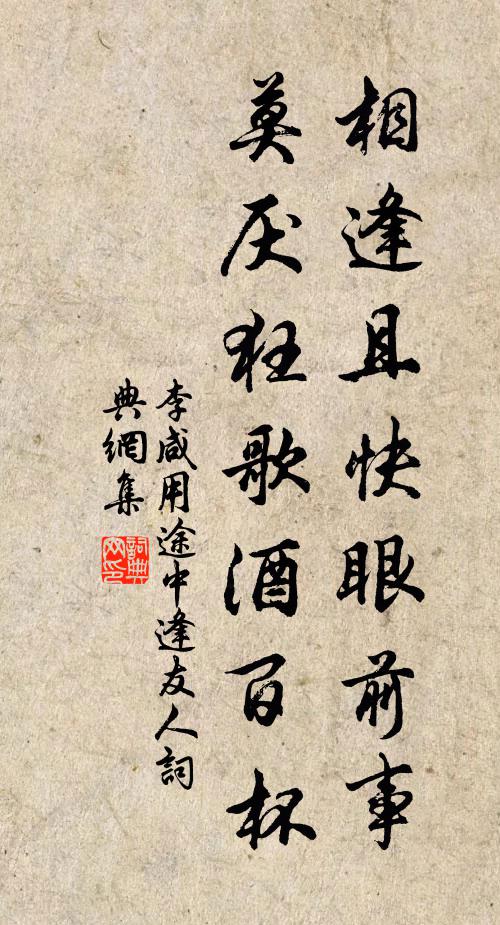 相逢且快眼前事
莫厌狂歌酒百杯
李咸用途中逢友人詞
典網集
詞典网印